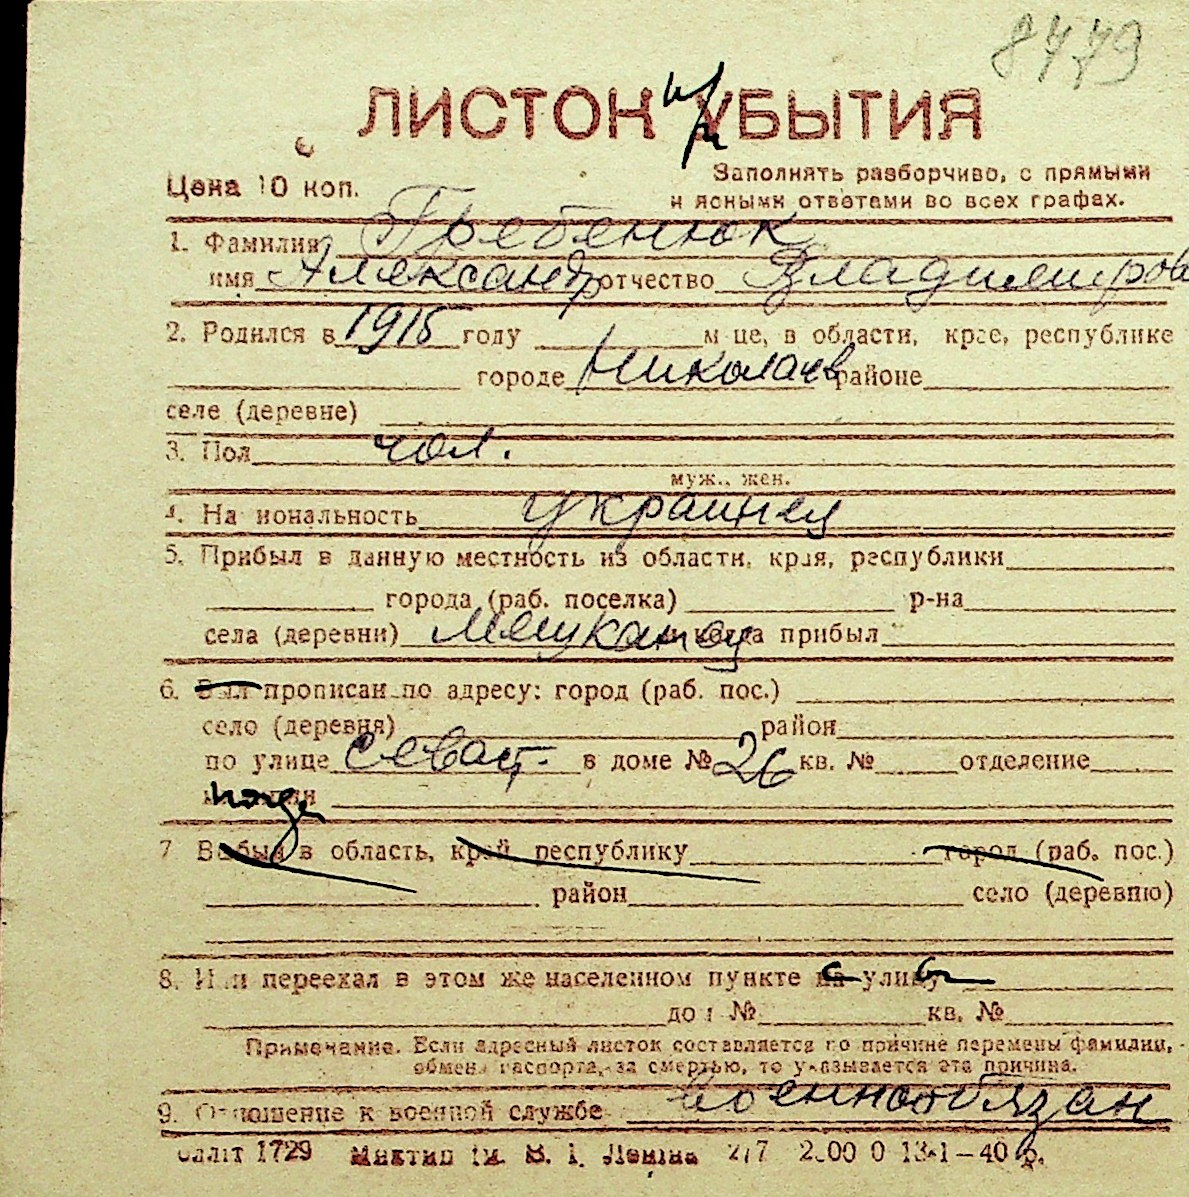 8779
ЛИСТОК УБЫТИЯ
Цена 10 коп.
Заполнять разборчиво, с прямыми
и ясными ответами во всех графах.
1. Фамилия Гребенюк
имя Александр отчество Владимиров
2. Родился в 1915 году м-це, в области, крае, республике
городе Николаев районе
селе (деревне)
3. Пол чол.
муж., жен.
4. На иональность украинец
5. Прибыл в данную местность из области, края, республики
города (раб. поселка) р-на
села (деревни) и когда прибыл
6. Был прописан по адресу: город (раб. пос.)
село (деревня) район
по улице Севаст. в доме № 26 кв. № отделение
7 Выбыл в область, край, республику город (раб. пос.)
район село (деревню)
8. Или переехал в этом же населенном пункте на улицу
дом № кв. №
Примечание. Если адресный листок составляется по причине перемены фамилии,
обмена паспорта, за смертью, то указывается эта причина.
9. Отношение к военной службе военнообязан
1729 им. В. І. Леніна 13-1-40 р.